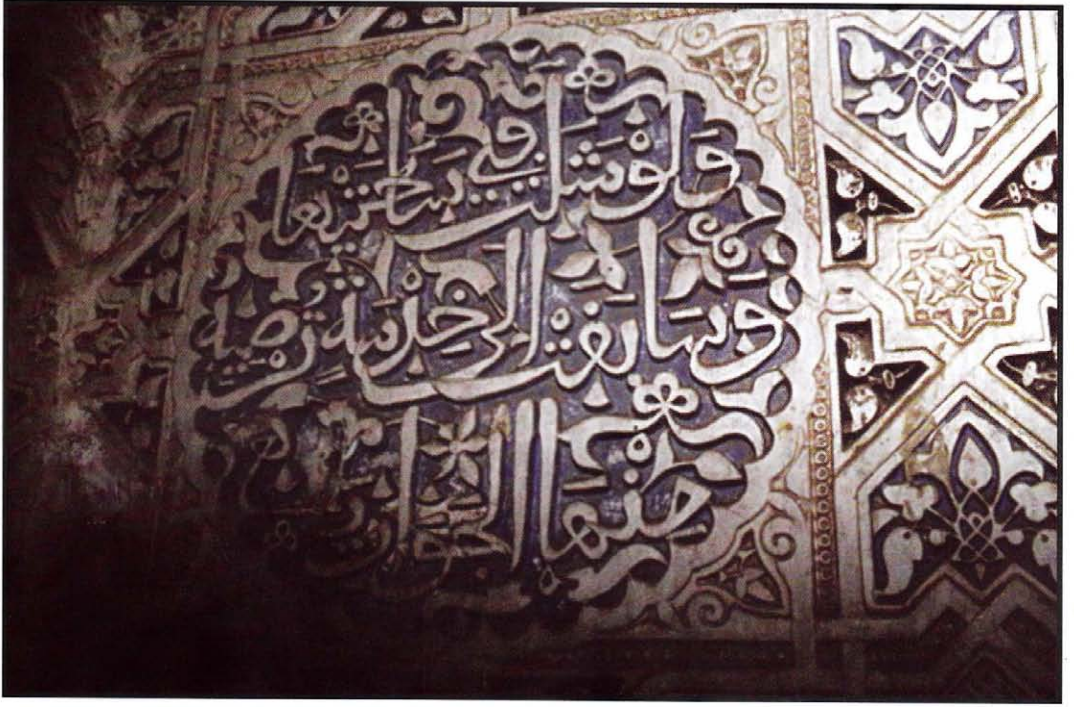 ولو مثلت في ساحتيها
وسابقت إلى خدمة ترضيه
منها الجواريا